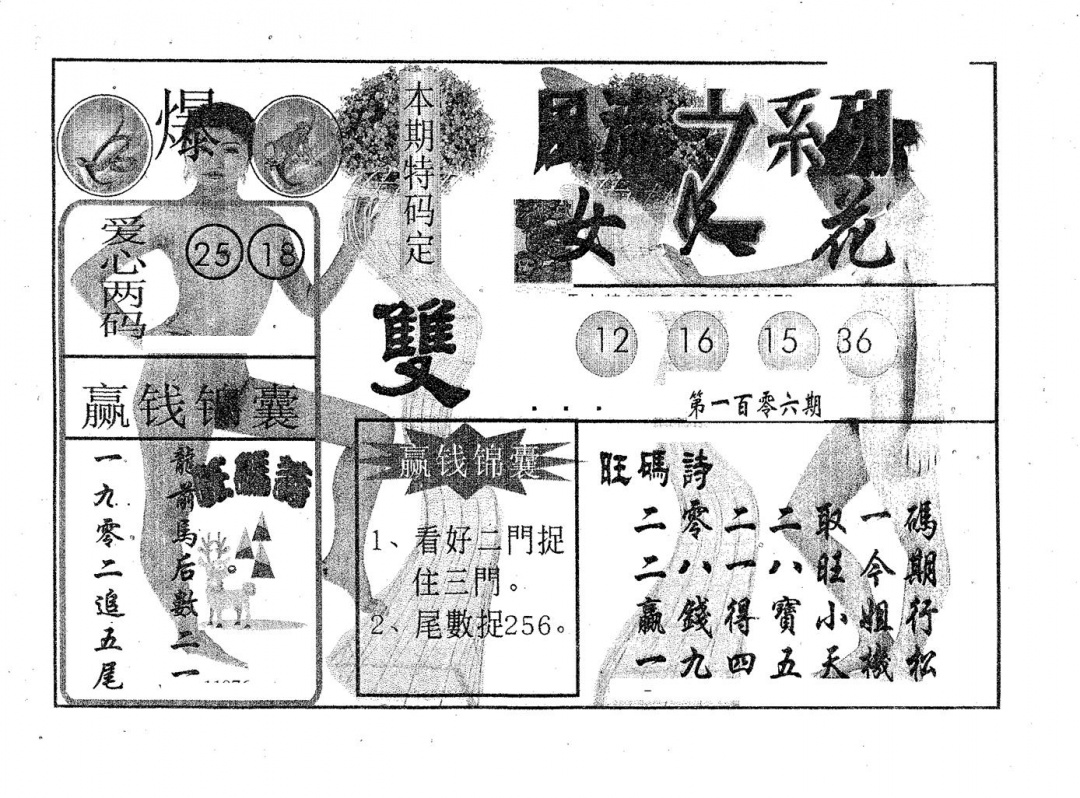 爆
爱心两码
25 18
赢钱锦囊
龍前馬后數二一
一九零二追五尾
本期特码定
雙
系列
女 花
12 16 15 36
第一百零六期
赢钱锦囊
1、看好二門捉
住三門。
2、尾數捉256。
旺碼詩
二零二二取一碼
二八一八旺今期
贏錢得寶小姐行
一九四五天機松